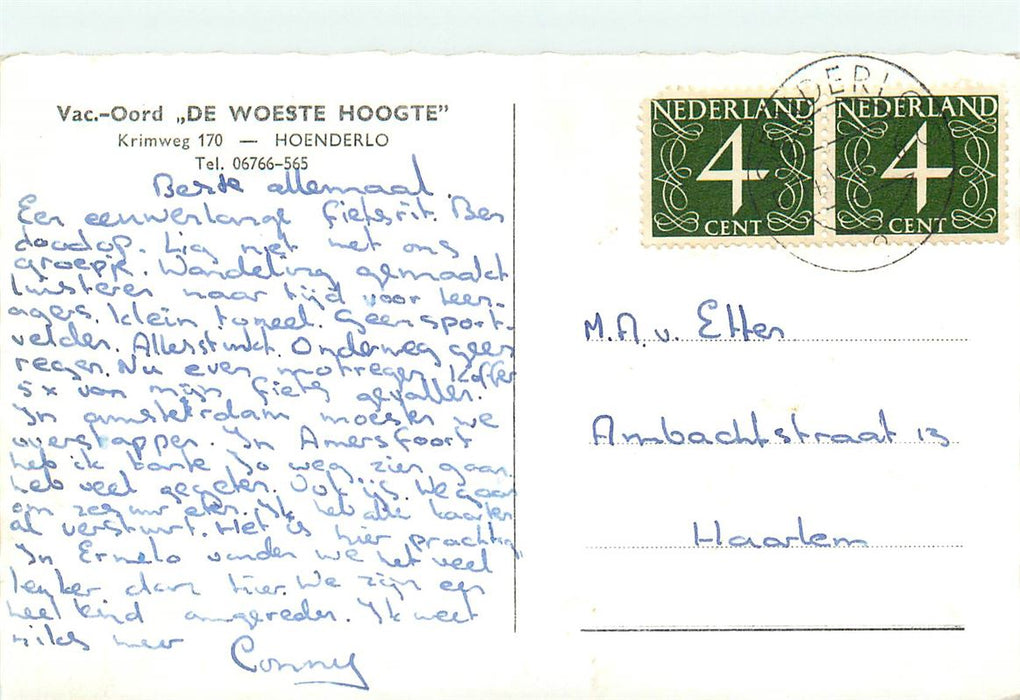 Vac.-Oord „DE WOESTE HOOGTE”
Krimweg 170 — HOENDERLO
Tel. 06766-565
Beste allemaal.
Een eeuwenlange fietsrit. Ben
doodop. Lig met ons
groepje. Wandeling gemaakt
luisteren naar tijd voor teen-
agers. Klein toneel. Geen sport-
velden. Alles stinkt. Onderweg geen
regen. Nu even motregen. Koffer
5x van mijn fiets gevallen.
In amsterdam moesten we
overstappen. In Amersfoort
heb ik tante Jo weg zien gaan.
heb veel gegeten. Ook ijs. We gaan
om zes uur eten. Ik heb alle kaarten
al verstuurt. Het is hier prachtig
In Ermelo vonden we het veel
leuker dan hier. We zijn een
heel eind omgereden. Ik weet
niks meer
Conny
NEDERLAND
4
CENT
NEDERLAND
4
CENT
M.A. v. Etten
Ambachtstraat 13
Haarlem